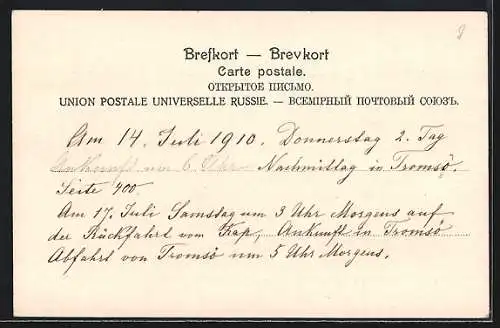 Brefkort — Brevkort
Carte postale.
ОТКРЫТОЕ ПИСЬМО.
UNION POSTALE UNIVERSELLE RUSSIE. — ВСЕМІРНЫЙ ПОЧТОВЫЙ СОЮЗЪ.
Am 14. Juli 1910. Donnerstag 2. Tag
Ankunft um 6. Uhr Nachmittag in Tromsö.
Seite 400.
Am 17. Juli Samstag um 3 Uhr Morgens auf
der Rückfahrt vom Kap, Ankunft in Tromsö
Abfahrt von Tromsö um 5 Uhr Morgens.